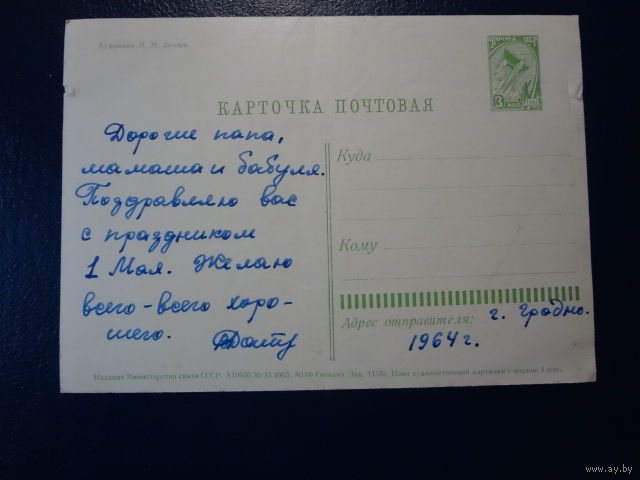 Художник Н. Н.
ПОЧТА СССР
3 КОП
КАРТОЧКА ПОЧТОВАЯ
Дорогие папа,
мамаша и бабуля.
Поздравляю вас
с праздником
1 Мая. Желаю
всего-всего хоро-
шего.
Куда
Кому
Адрес отправителя: г. Гродно.
1964 г.
Издание Министерства связи СССР. А10950 30/XI 1963. МПФ Гознака. Зак. Цена художественной карточки с маркой 4 коп.
www.ay.by